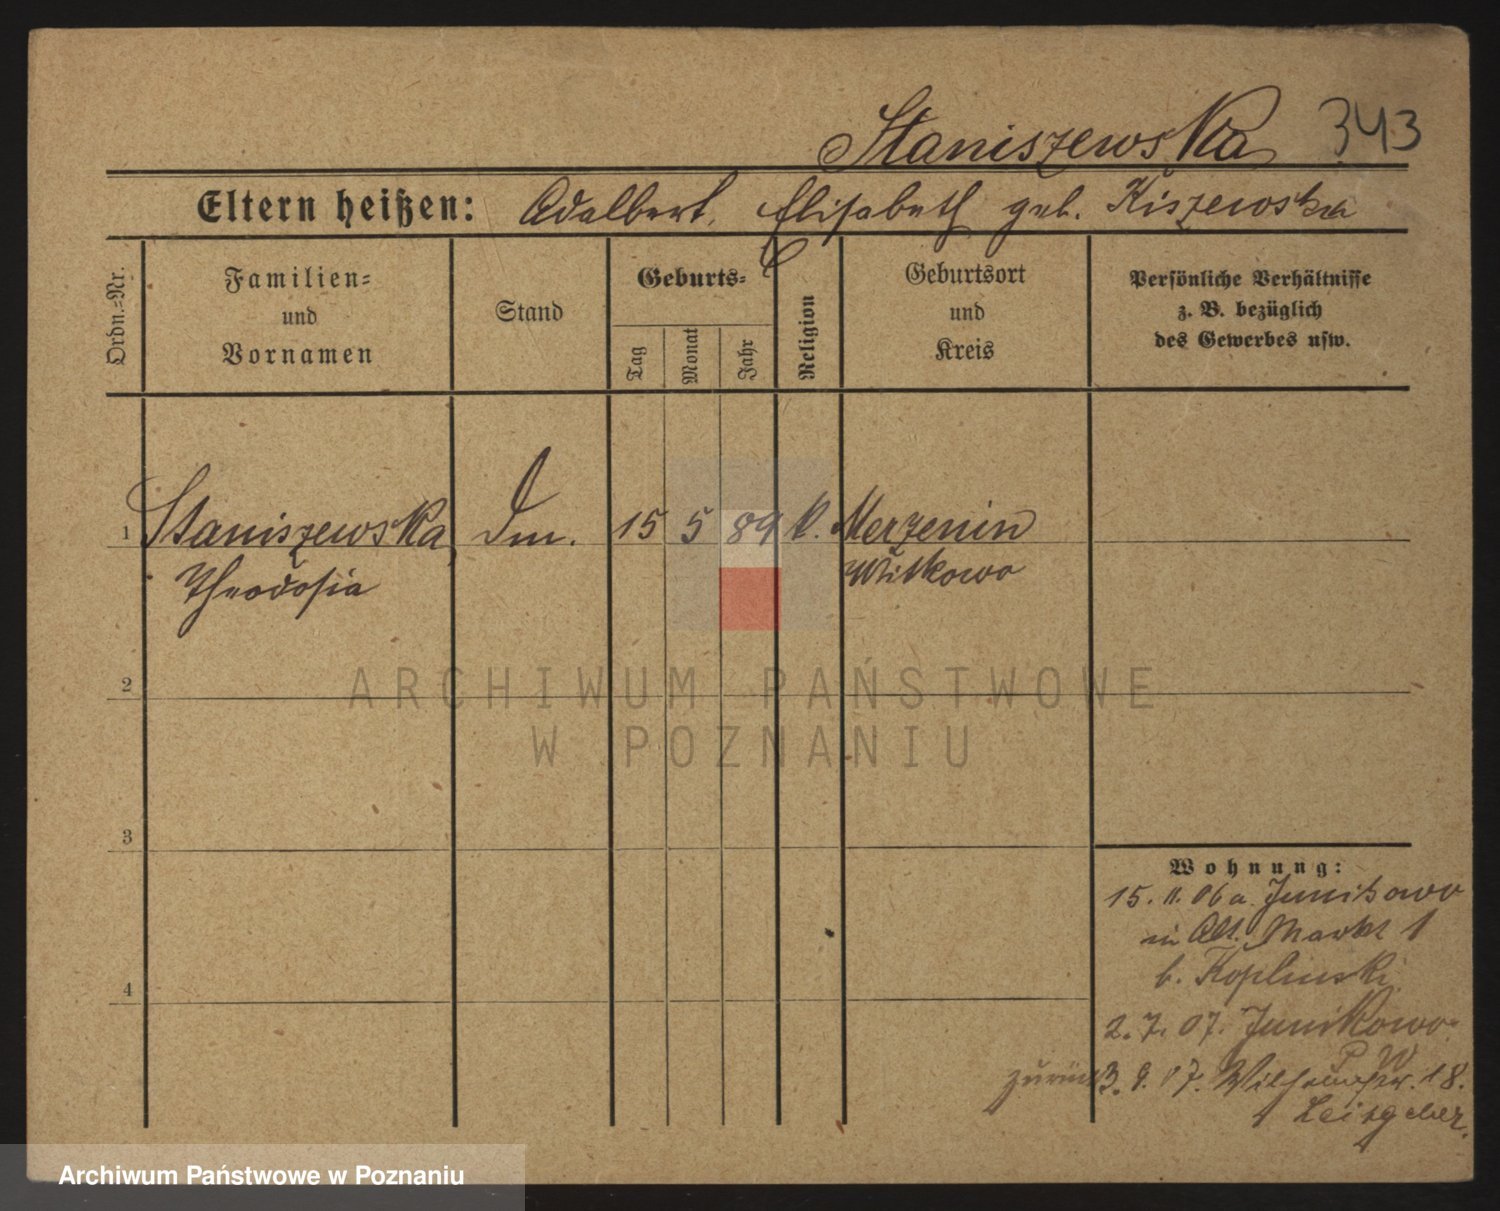 Staniszewska 343
Eltern heißen: Adalbert, Elisabeth geb. Kiszewska
Ordn.-Nr.
Familien-
und
Vornamen
Stand
Geburts-
Tag
Monat
Jahr
Religion
Geburtsort
und
Kreis
Persönliche Verhältnisse
z. B. bezüglich
des Gewerbes usw.
1 Staniszewska, Dm. 15 5 89 k. Merzenin
Theodosia Witkowo
2
ARCHIWUM PAŃSTWOWE
W POZNANIU
3
Wohnung:
15. 11. 06 a. Junikowo
in Alt. Markt 1
b. Koplinski
2. 7. 07. Junikowo
P W
zurück 3. 9. 07. Wilhelmstr. 18.
Leitgeber.
4
Archiwum Państwowe w Poznaniu